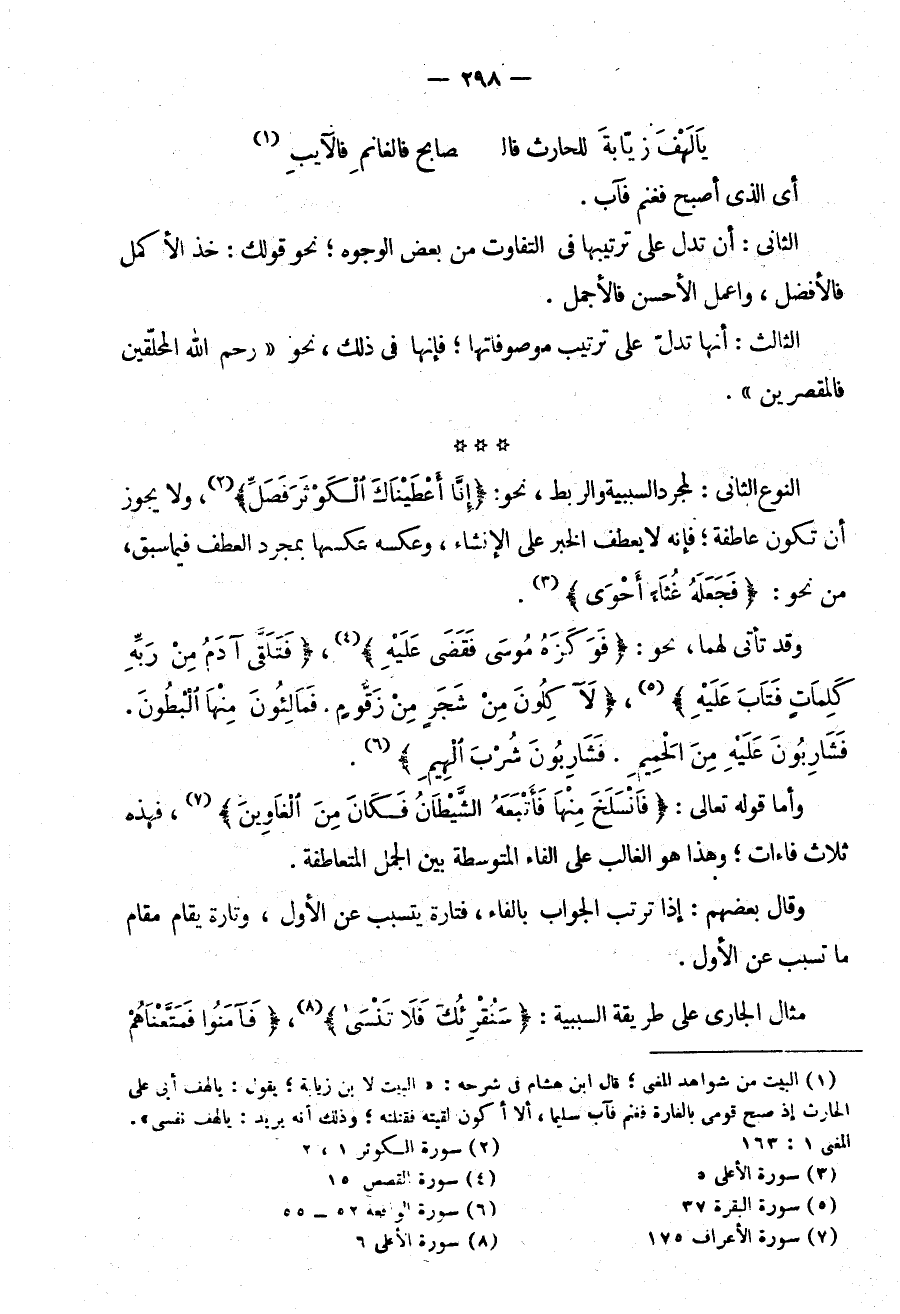 — ٢٩٨ —
يَالَهْفَ زيّابةَ للحارث فالـ صابح فالغانمِ فالآيبِ (١)
أى الذى أصبح فغنم فآب .
الثانى : أن تدل على ترتيبها فى التفاوت من بعض الوجوه ؛ نحو قولك : خذ الأكمل
فالأفضل ، واعمل الأحسن فالأجمل .
الثالث : أنها تدلّ على ترتيب موصوفاتها ؛ فإنها فى ذلك ، نحو « رحم الله المحلّقين
فالمقصرين » .
* * *
النوع الثانى : لمجرد السببية والربط ، نحو: ﴿ إِنَّا أَعْطَيْنَاكَ ٱلْكَوْثَرَ فَصَلِّ ﴾(٢)، ولا يجوز
أن تكون عاطفة ؛ فإنه لا يعطف الخبر على الإنشاء ، وعكسه عكسها بمجرد العطف فيما سبق،
من نحو : ﴿ فَجَعَلَهُ غُثَاءً أَحْوَى ﴾ (٣) .
وقد تأتى لهما، نحو : ﴿ فَوَكَزَهُ مُوسَى فَقَضَى عَلَيْهِ ﴾(٤) ، ﴿ فَتَلَقَّى آدَمُ مِنْ رَبِّهِ
كَلِمَاتٍ فَتَابَ عَلَيْهِ ﴾ (٥) ، ﴿ لَآكِلُونَ مِنْ شَجَرٍ مِنْ زَقُّومٍ . فَمَالِئُونَ مِنْهَا ٱلْبُطُونَ .
فَشَارِبُونَ عَلَيْهِ مِنَ الْحَمِيمِ . فَشَارِبُونَ شُرْبَ ٱلْهِيمِ ﴾ (٦) .
وأما قوله تعالى : ﴿ فَانْسَلَخَ مِنْهَا فَأَتْبَعَهُ الشَّيْطَانُ فَكَانَ مِنَ ٱلْغَاوِينَ ﴾ (٧) ، فهذه
ثلاث فاءات ؛ وهذا هو الغالب على الفاء المتوسطة بين الجمل المتعاطفة .
وقال بعضهم : إذا ترتب الجواب بالفاء ، فتارة يتسبب عن الأول ، وتارة يقام مقام
ما تسبب عن الأول .
مثال الجارى على طريقة السببية : ﴿ سَنُقْرِئُكَ فَلَا تَنْسَىٰ ﴾(٨)، ﴿ فَآمَنُوا فَمَتَّعْنَاهُمْ
(١) البيت من شواهد المغنى ؛ قال ابن هشام فى شرحه : « البيت لابن زيابة ؛ يقول : يالهف أبى على
الحارث إذ صبح قومى بالغارة فغنم فآب سليما ، ألا أكون لقيته فقتلته ؛ وذلك أنه يريد : يالهف نفسى ».
المغنى ١ : ١٦٣ (٢) سورة الكوثر ١ ، ٢
(٣) سورة الأعلى ٥ (٤) سورة القصص ١٥
(٥) سورة البقرة ٣٧ (٦) سورة الواقعة ٥٢ – ٥٥
(٧) سورة الأعراف ١٧٥ (٨) سورة الأعلى ٦